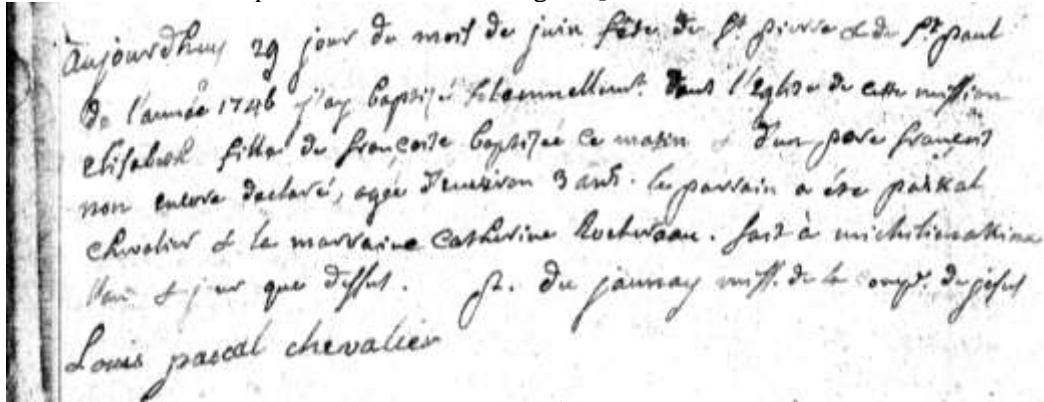 Aujourdhuy 29 jour du mois de juin fête de St pierre & de St paul
de l'année 1746 j'ay baptisé solemnellemt. dans l'Eglise de cette mission
Elisabeth fille de françoise baptisée ce matin & d'un pere françois
non encore declaré, agée d'environ 3 ans. le parrain a été paskal
chevalier & la marraine Catherine Rocheveau. fait à michilimakina
l'an & jour que dessus. P. du jaunay miss. de la comp. de jesus
Louis pascal chevalier